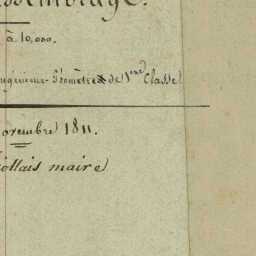 ssemblage.
à 10,000.
ngénieur-Géomètre de 1ère Classe
ovembre 1811.
ollais maire